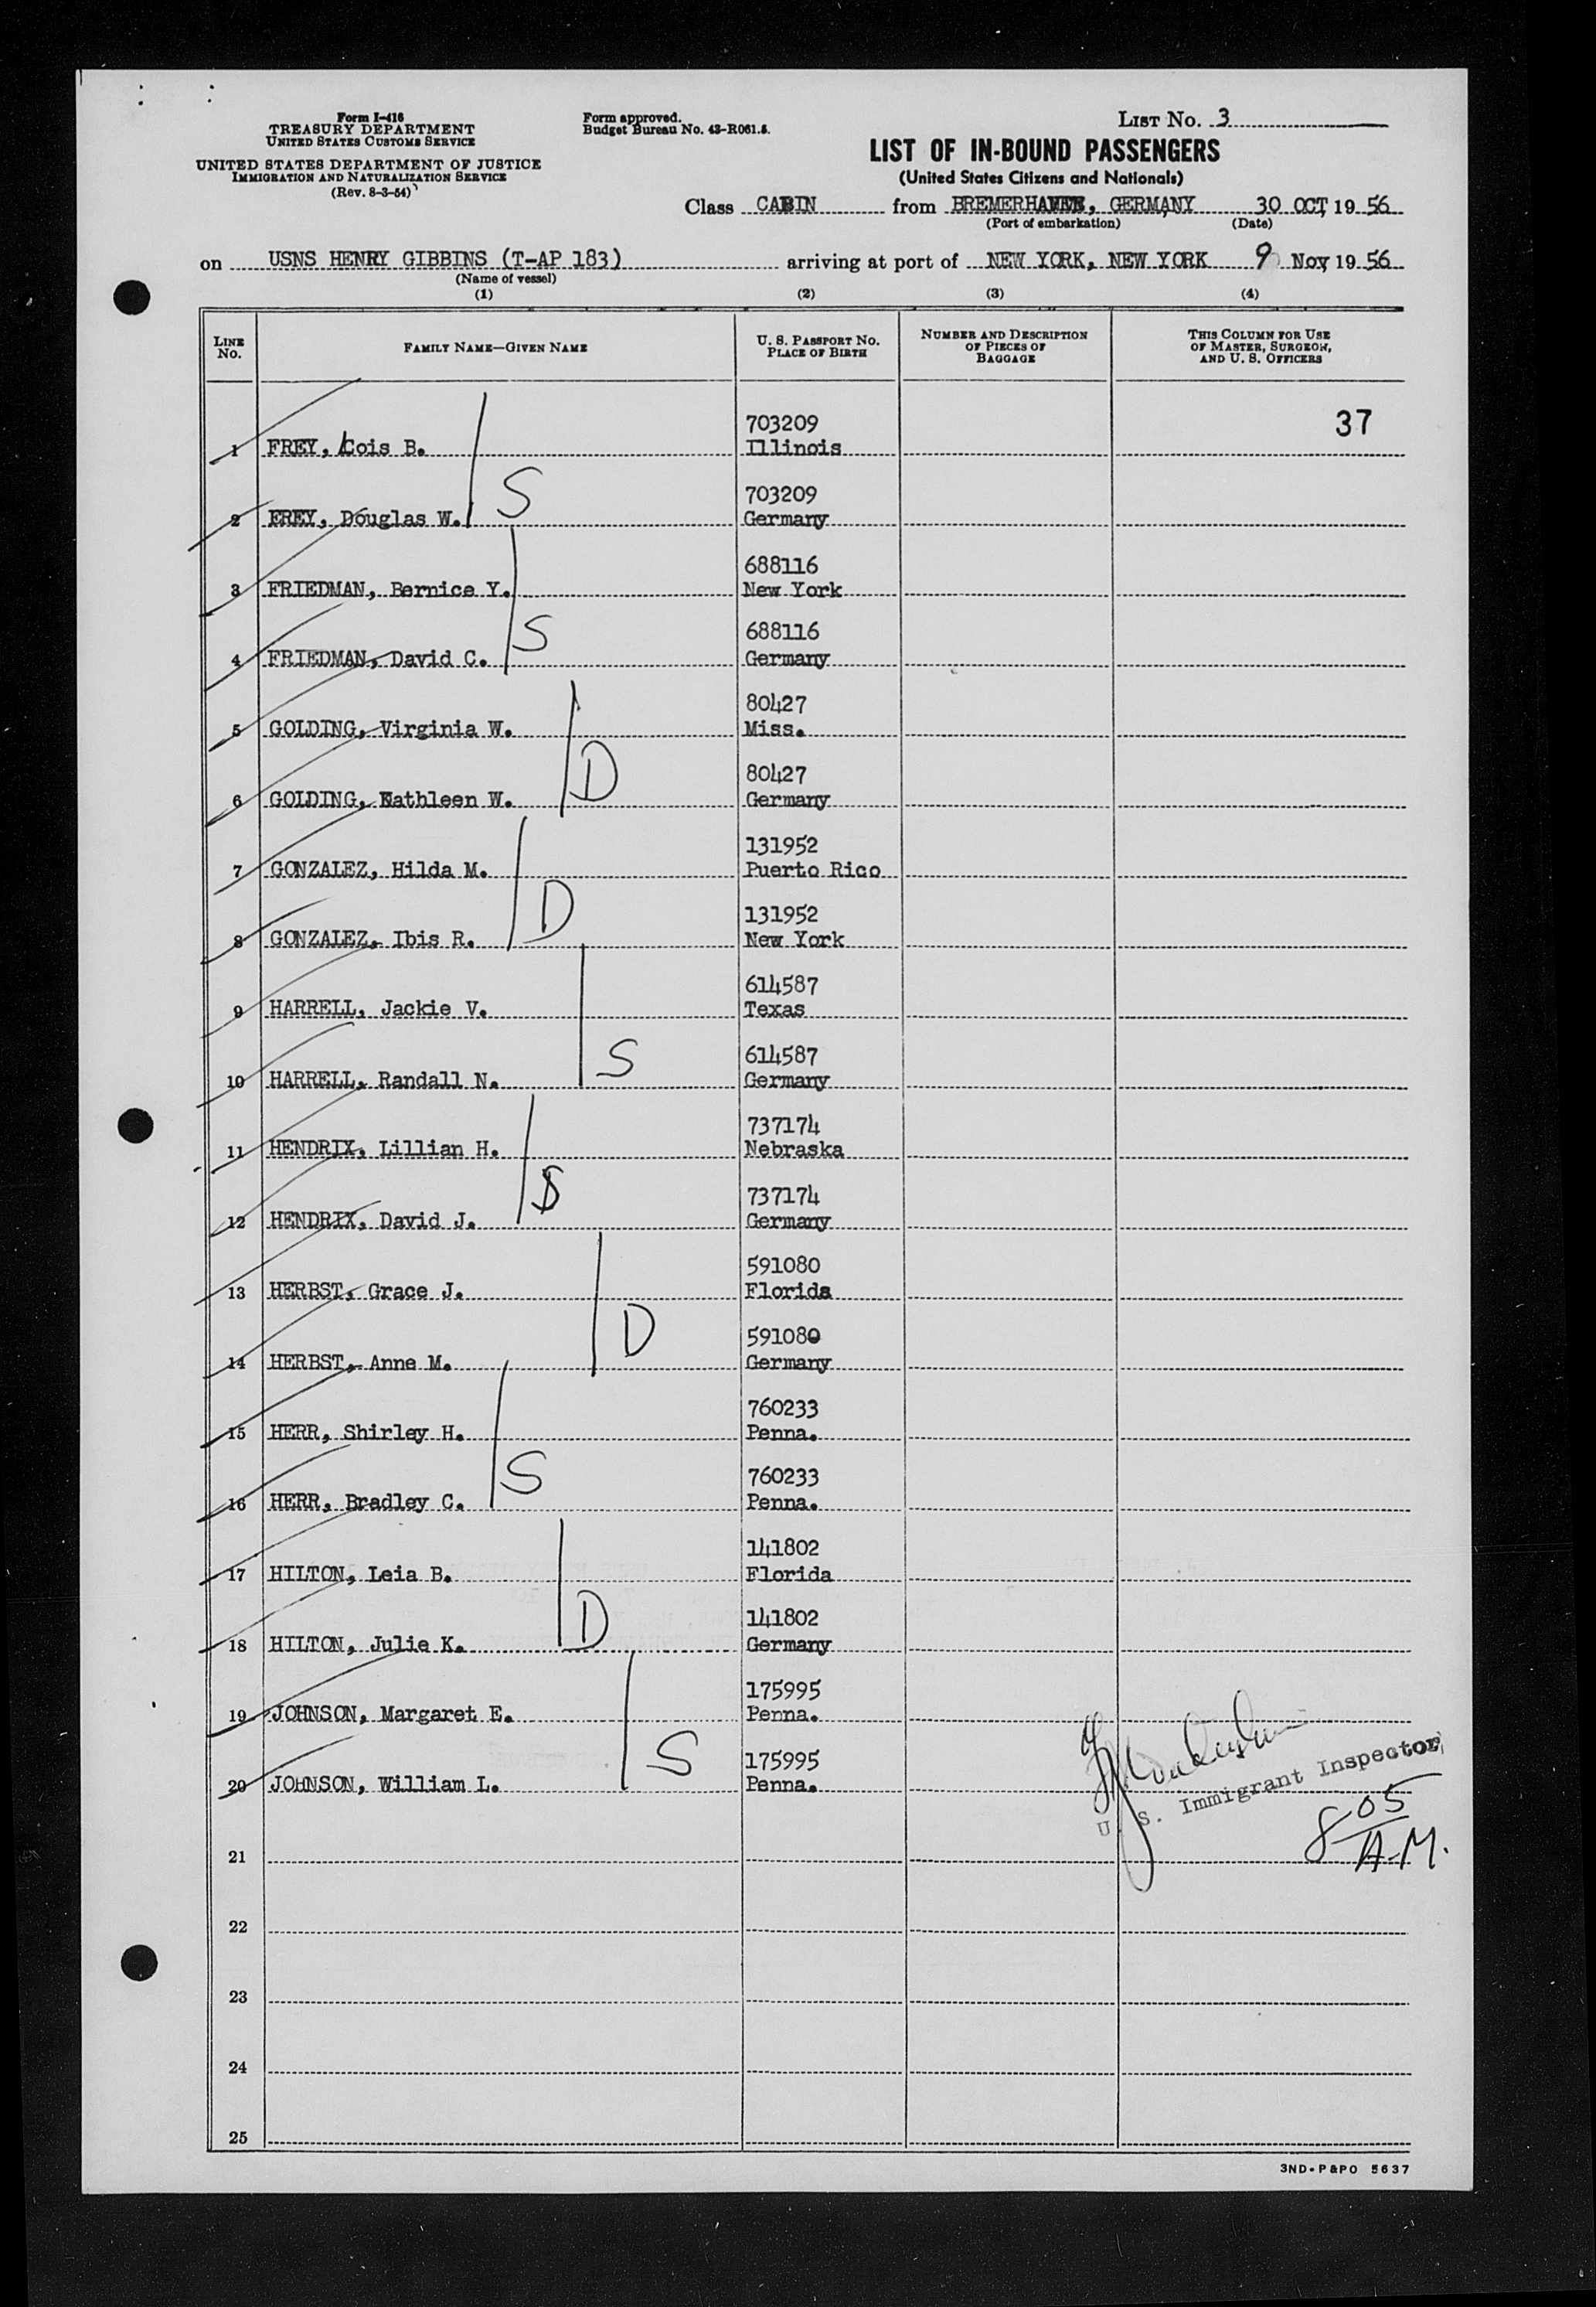 Form I-416
TREASURY DEPARTMENT
UNITED STATES CUSTOMS SERVICE
UNITED STATES DEPARTMENT OF JUSTICE
IMMIGRATION AND NATURALIZATION SERVICE
(Rev. 8-3-54)
Form approved.
Budget Bureau No. 43-R061.5.
LIST NO. 3
LIST OF IN-BOUND PASSENGERS
(United States Citizens and Nationals)
Class CABIN from BREMERHAVEN, GERMANY 30 OCT, 19 56
(Port of embarkation) (Date)
on USNS HENRY GIBBINS (T-AP 183) arriving at port of NEW YORK, NEW YORK 9 Nov, 19 56
(Name of vessel)
(1) (2) (3) (4)
LINE NO. FAMILY NAME—GIVEN NAME U. S. PASSPORT NO. PLACE OF BIRTH NUMBER AND DESCRIPTION OF PIECES OF BAGGAGE THIS COLUMN FOR USE OF MASTER, SURGEON, AND U. S. OFFICERS
703209 37
1 FREY, Cois B. Illinois
S
703209
2 FREY, Douglas W. Germany
688116
3 FRIEDMAN, Bernice Y. New York
S
688116
4 FRIEDMAN, David C. Germany
80427
5 GOLDING, Virginia W. Miss.
D
80427
6 GOLDING, Kathleen W. Germany
131952
7 GONZALEZ, Hilda M. Puerto Rico
D
131952
8 GONZALEZ, Ibis R. New York
614587
9 HARRELL, Jackie V. Texas
S
614587
10 HARRELL, Randall N. Germany
737174
11 HENDRIX, Lillian H. Nebraska
S
737174
12 HENDRIX, David J. Germany
591080
13 HERBST, Grace J. Florida
D
591080
14 HERBST, Anne M. Germany
760233
15 HERR, Shirley H. Penna.
S
760233
16 HERR, Bradley C. Penna.
141802
17 HILTON, Leia B. Florida
D
141802
18 HILTON, Julie K. Germany
175995
19 JOHNSON, Margaret E. Penna.
S
175995
20 JOHNSON, William L. Penna.
U. S. Immigrant Inspector
8 05
A.M.
21
22
23
24
25
3ND-P&PO 5637